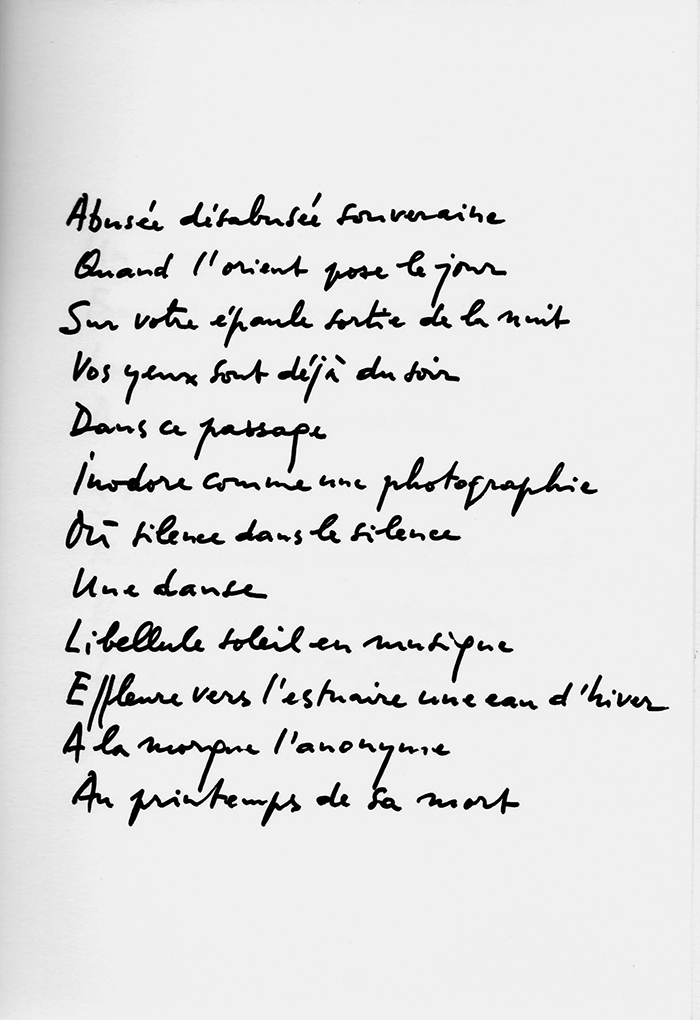 Abusée désabusée souveraine
Quand l'orient pose le jour
Sur votre épaule sortie de la nuit
Vos yeux sont déjà du soir
Dans ce passage
Inodore comme une photographie
Où silence dans le silence
Une danse
Libellule soleil en musique
Effleure vers l'estuaire une eau d'hiver
A la morgue l'anonyme
Au printemps de sa mort